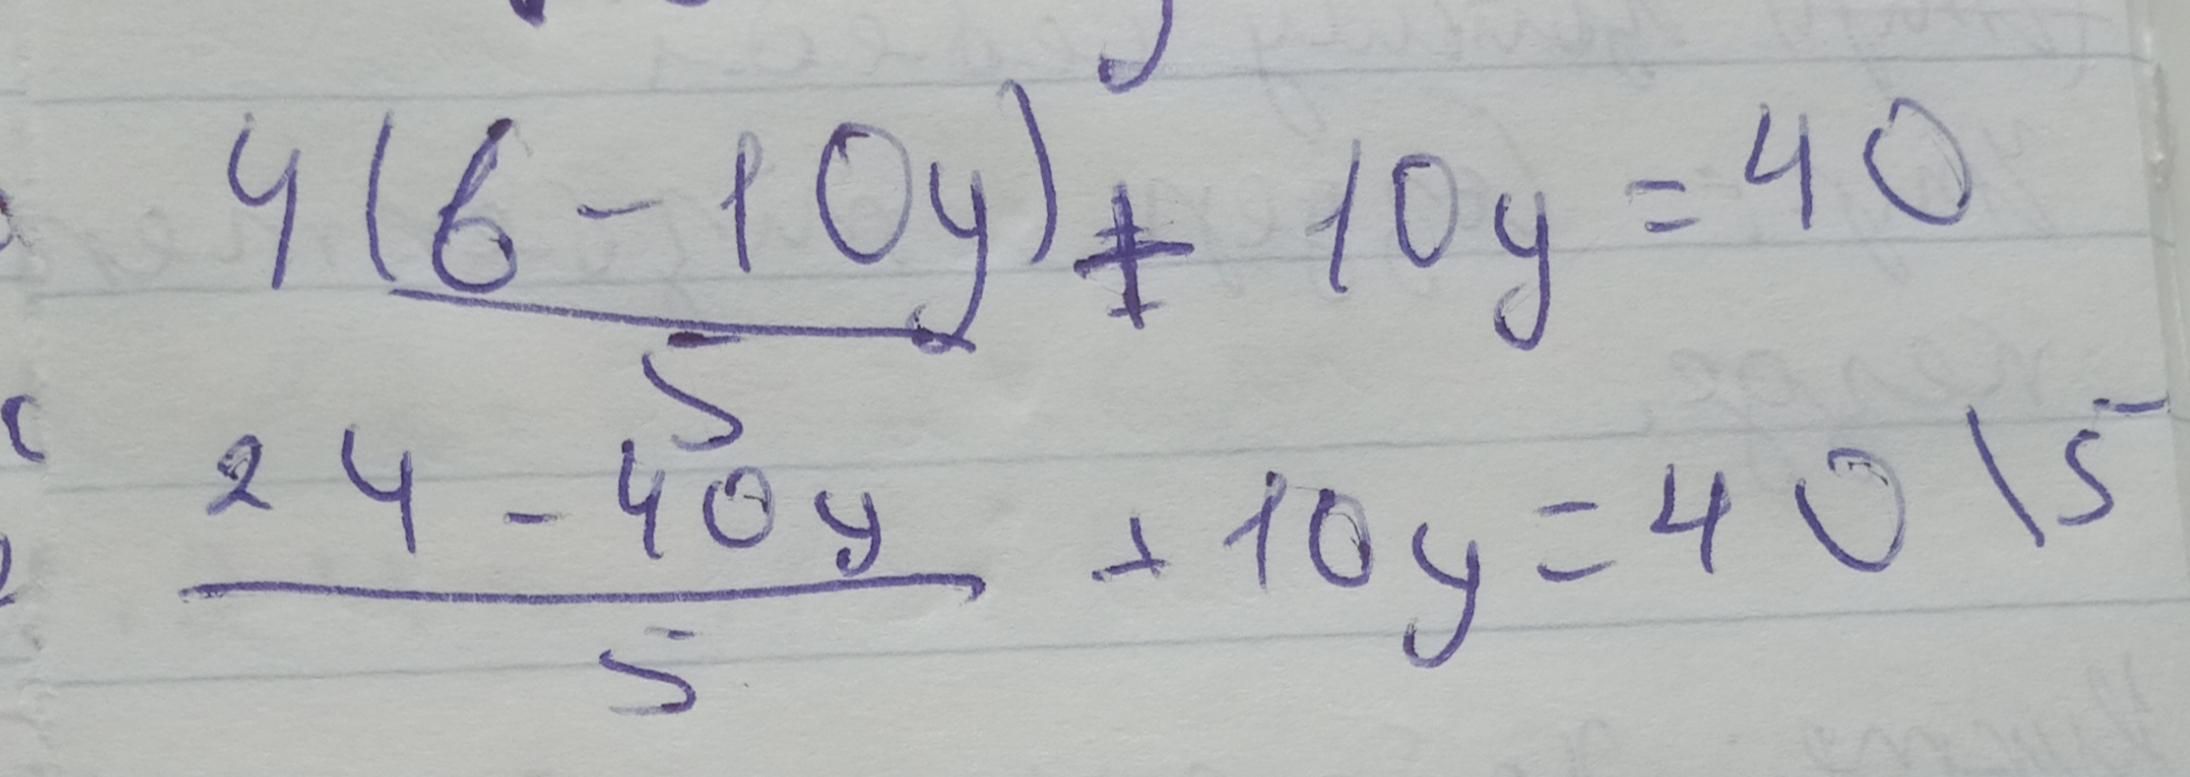 4(6-10y)/5 + 10y = 40
24-40y/5 + 10y = 40 \5